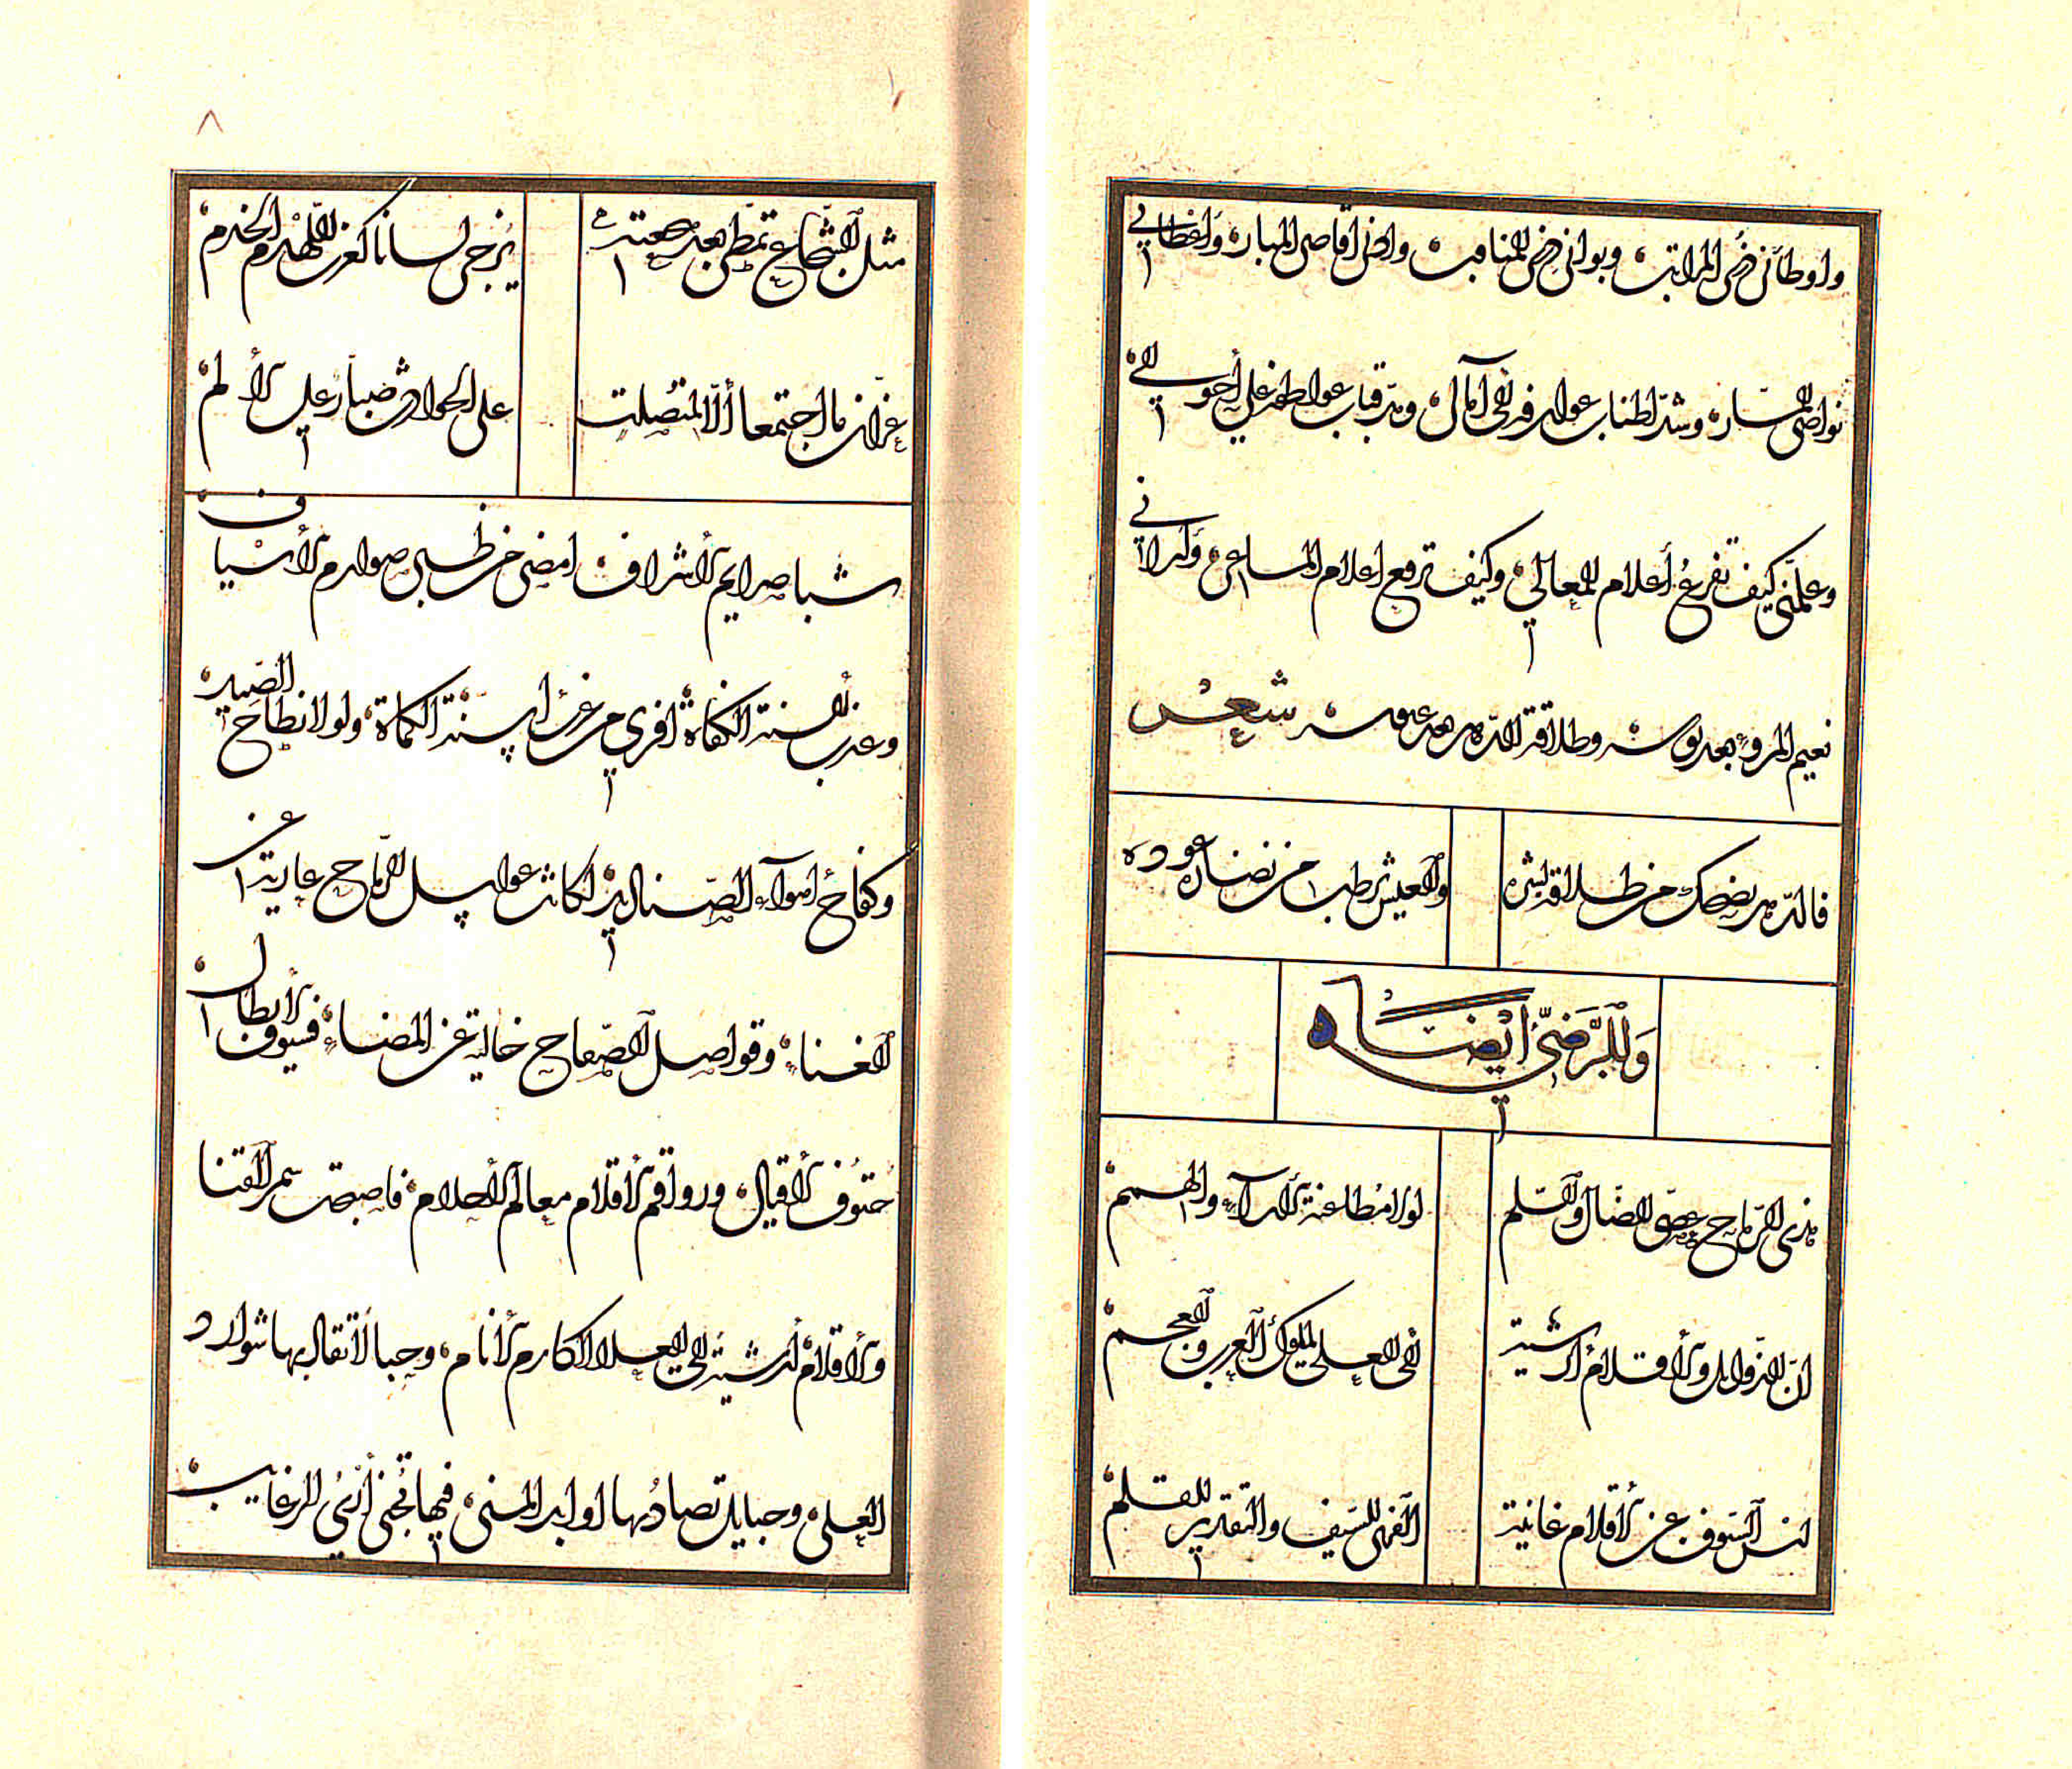 واوطأني قمم المراتب وبوأني قمم المناقب وادنى اقاصي المبارّ واعطاني
نواصي المسارّ وشدّ اطناب عوارفه الى آمالي ومدّ قباب عواطفه على أحوالي
وعلّمني كيف تفرع أعلام المعالي وكيف ترفع اعلام المساعي وأراني
نعيم المرو بعد بوسه وطلاقة الدهر بعد عبوسه شعر
فالدّهر يضحك من طلاقة بشره
والعيش رطب من نضارة عوده
وللرّضيّ أيضاً
هذي الرّماح عصيّ الضّال والسّلم
لولا مطاعنة الآراء والهمم
انّ الذّوابل والأقلام أرشية
الى العلى لملوك العرب والعجم
ليس السّيوف عن الأقلام غانية
الفري للسّيف والتّقدير للقلم
٨
مثل الشّجاع تمطّى بعد هعته
يزجى لسانا كغرب اللّهذم الخذم
عزّان ما اجتمعا ألّا لمنصلت
على الحوادث صبّار على الألم
شبا صرايم الأشراف امضى من ظبى صوارم الأسياف
وعذب ألسنة الكفاة افرى من غرب اسنّة الكماة ولولا انطاح الصّيد
وكفاح اهواء الصّناديد لكانت عواسل الرّماح عارية عن
الغناء وقواصل الصّفاح خالية عن المضاء فسيوف الأبطال
حتوف الأقيال ورواقم الأقلام معالم الأحلام فاصبحت سمر القنا
والأقلام أرشية الى العلا لاكارم الأنام وحبالا تقاد بها شوارد
العلى وحبايل تصاد بها اوابد المنى فيها تجنى أري الرغايب